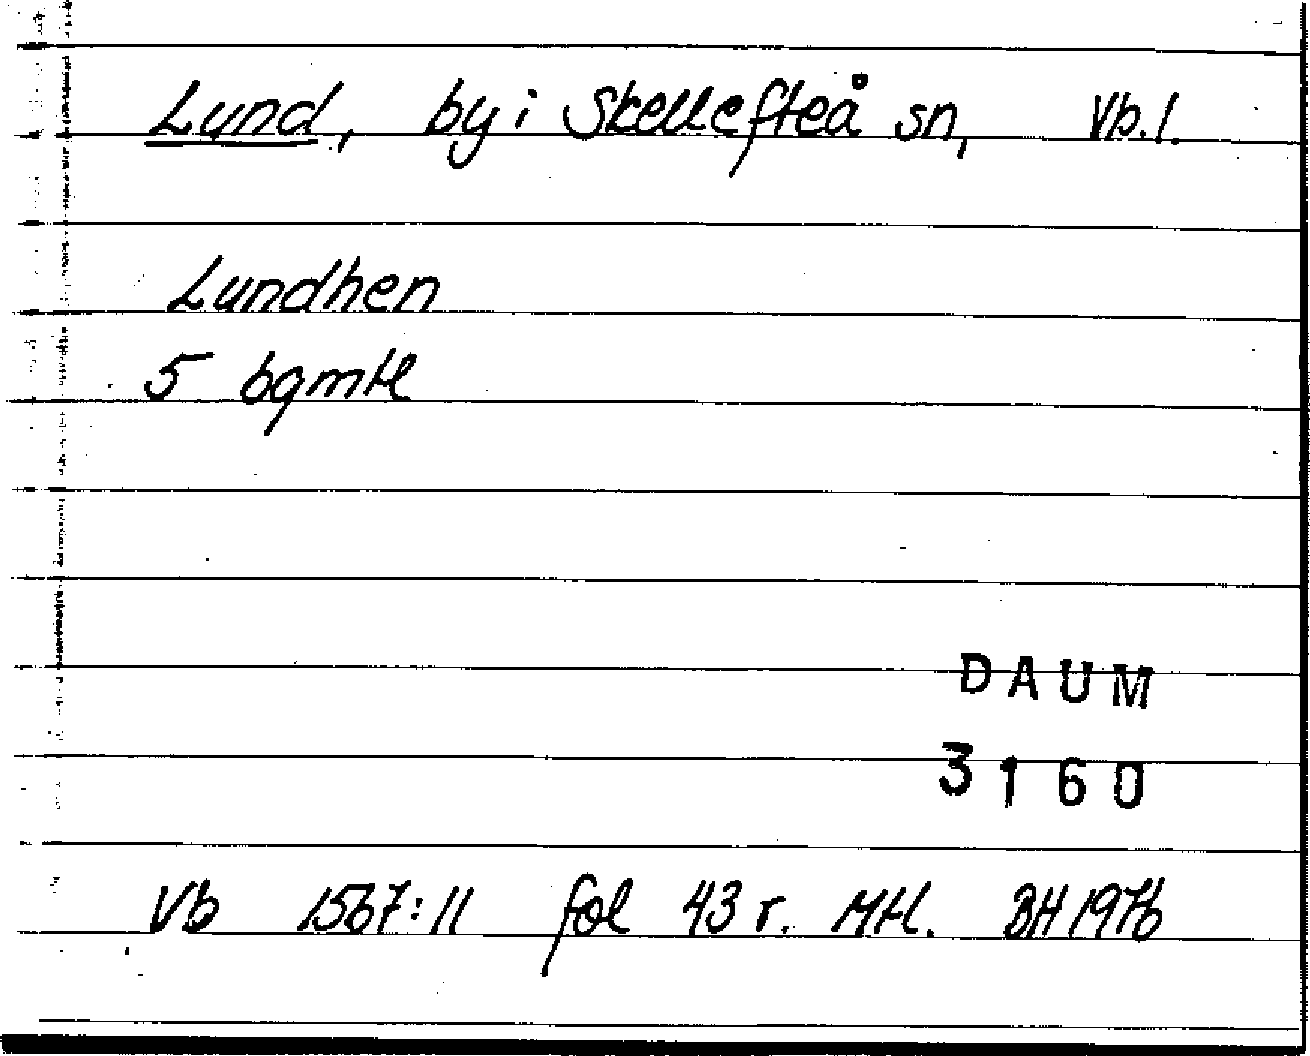 Lund, by i Skellefteå sn, Vb. l.
Lundhen
5 bgmtl
DAUM
3160
Vb 1567:11 fol 43 r. Mtl. BH 1976